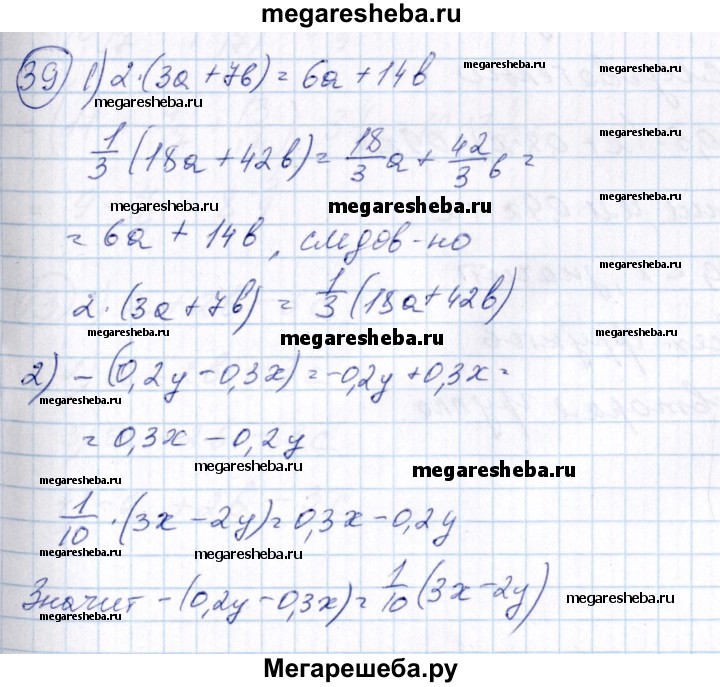 megaresheba.ru
39) 1) 2·(3a+7b) = 6a+14b
megaresheba.ru
megaresheba.ru
megaresheba.ru
1/3 (18a+42b) = 18/3 a + 42/3 b =
megaresheba.ru
megaresheba.ru
megaresheba.ru
= 6a + 14b, следов-но
megaresheba.ru
megaresheba.ru
2·(3a+7b) = 1/3 (18a+42b)
megaresheba.ru
megaresheba.ru
megaresheba.ru
2) -(0,2y-0,3x) = -0,2y+0,3x =
megaresheba.ru
megaresheba.ru
= 0,3x - 0,2y
megaresheba.ru
megaresheba.ru
megaresheba.ru
1/10 ·(3x-2y) = 0,3x-0,2y
megaresheba.ru
megaresheba.ru
megaresheba.ru
Значит -(0,2y-0,3x) = 1/10 (3x-2y)
megaresheba.ru
megaresheba.ru
Мегарешеба.ру